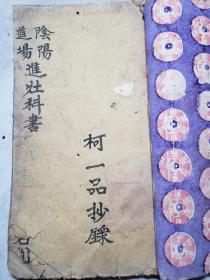 陰陽道場進壯科書
柯一品抄錄